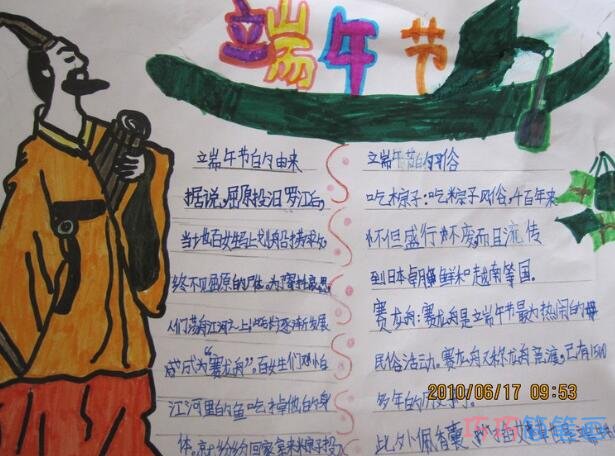 端午节
端午节的由来
据说，屈原投汨罗江后，
当地百姓马上划船捞救
终不见屈原的尸体。为
人们荡舟江河之上，此后逐渐发展
成为“赛龙舟”。百姓们又怕
江河里的鱼吃掉他的身
体。就纷纷回家拿来米粽子投
端午节的习俗
吃粽子：吃粽子风俗，千百年来
不但盛行不衰而且流传
到日本朝鲜和越南等国。
赛龙舟：赛龙舟是端午节最为热闹的
民俗活动。赛龙舟又称龙舟竞渡，已有1500
多年的历史了。
此外佩香囊
2010/06/17 09:53